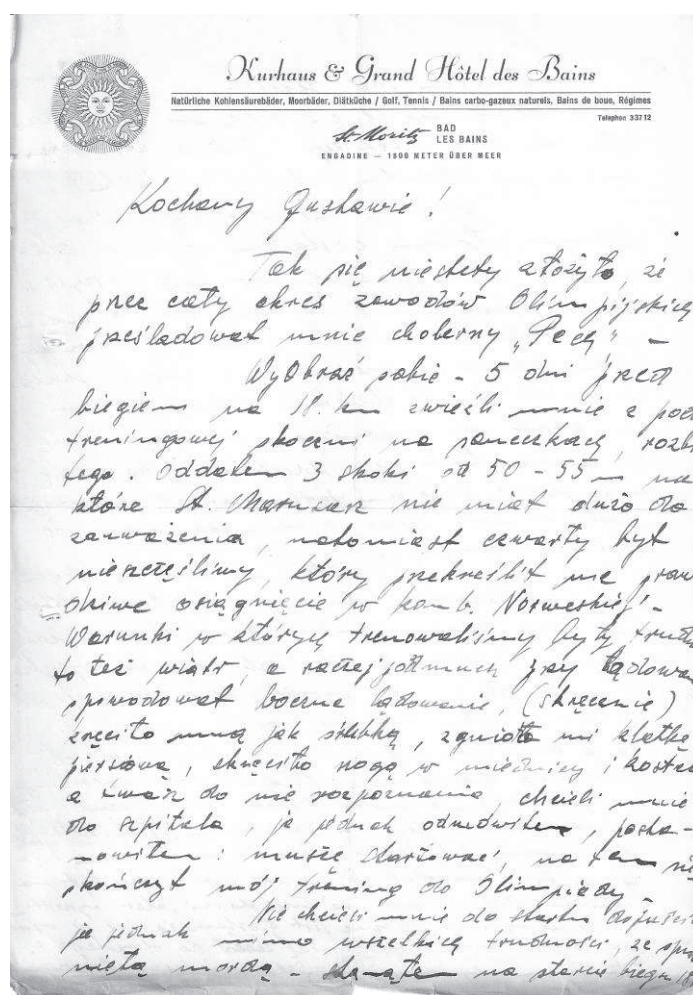 Kurhaus & Grand Hôtel des Bains
Natürliche Kohlensäurebäder, Moorbäder, Diätküche / Golf, Tennis / Bains carbo-gazeux naturels, Bains de boue, Régimes
Telephon 33712
St. Moritz BAD
LES BAINS
ENGADINE — 1800 METER ÜBER MEER
Kochany Gustawie!
Tak się niestety złożyło, że
przez cały okres zawodów Olimpijskich
prześladował mnie cholerny „Pech” –
Wyobraź sobie – 5 dni przed
biegiem na 18. km zwieźli mnie z pod
treningowej skoczni na saneczkach,
tego. Oddałem 3 skoki od 50 – 55 m na
które St. Marusarz nie miał dużo do
zauważenia, natomiast czwarty był
nieszczęśliwy, który przekreślił me
osiągnięcie w komb. Norweskiej –
Warunki w których trenowaliśmy były
to też wiatr, a raczej podmuch przy
spowodował boczne lądowanie, (skręcenie)
mną jak śrubką, zgniotło mi klatkę
piersiową, skręciło nogę w miednicy i
a twarz do nie rozpoznania, chcieli mnie
do szpitala, ja jednak odmówiłem, posta-
nowiłem: muszę startować, na tem się
skończył mój trening do Olimpiady
Nie chcieli mnie do startu
ja jednak mimo wszelkich trudności, ze
mordą – stanąłem na starcie biegu